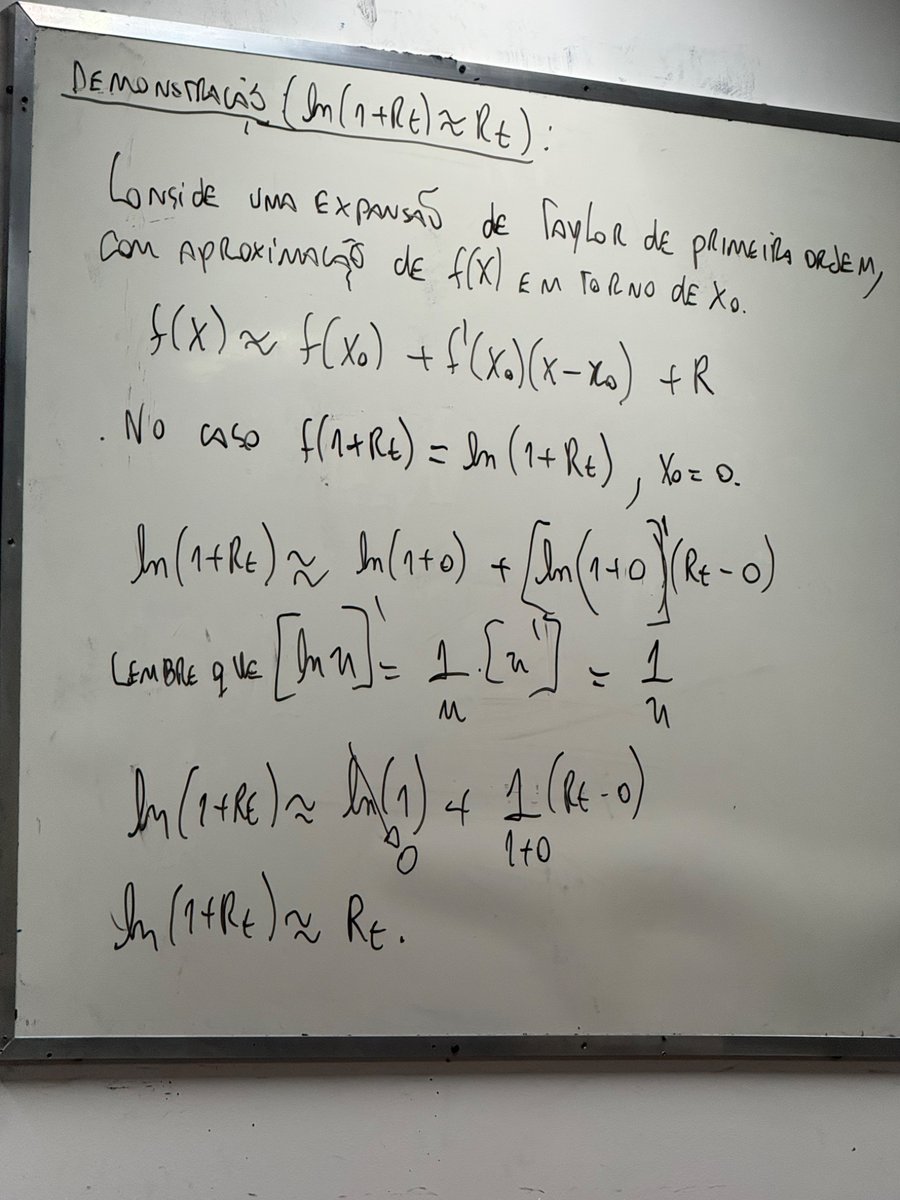 DEMONSTRAÇÃO (ln(1+Rt) ≈ Rt):
CONSIDE UMA EXPANSÃO de TAYLOR de PRIMEIRA ORDEM,
COM APROXIMAÇÃO de f(x) EM TORNO DE X₀.
f(x) ≈ f(x₀) + f'(x₀)(x-x₀) + R
. NO CASO f(1+Rt) = ln(1+Rt), X₀ = 0.
ln(1+Rt) ≈ ln(1+0) + [ln(1+0]'(Rt - 0)
LEMBRE QUE [ln u]' = 1/u · [u'] = 1/u
ln(1+Rt) ≈ ln(1) → 0 + 1/(1+0) · (Rt - 0)
ln(1+Rt) ≈ Rt.